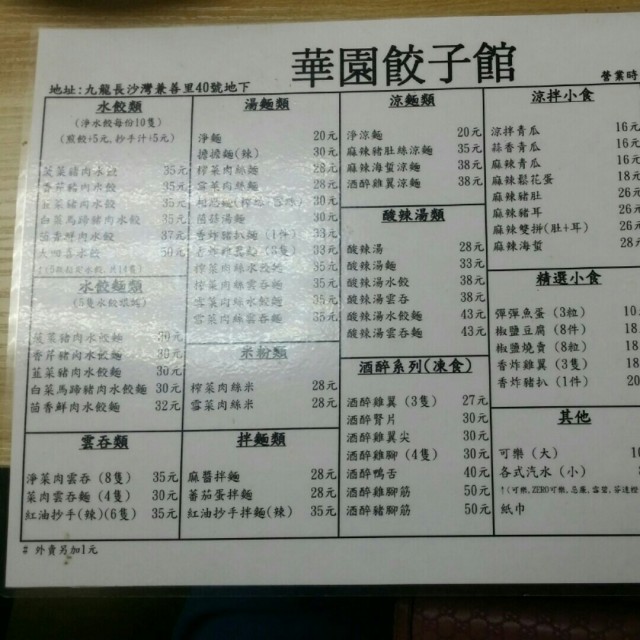 華園餃子館
地址:九龍長沙灣兼善里40號地下
營業時
水餃類
(淨水餃每份10隻)
(煎餃+5元,抄手汁+5元)
菜豬肉水餃 35元
香芹豬肉水餃 35元
韮菜豬肉水餃 35元
白菜馬蹄豬肉水餃 35元
茴香鮮肉水餃 37元
水餃麵類
菜豬肉水餃麵 30元
香芹豬肉水餃麵 30元
韮菜豬肉水餃麵 30元
白菜馬蹄豬肉水餃麵 30元
茴香鮮肉水餃麵 32元
雲吞類
淨菜肉雲吞 (8隻) 35元
菜肉雲吞麵 (4隻) 30元
紅油抄手(辣)(6隻) 35元
# 外賣另加1元
湯麵類
淨麵 20元
擔擔麵(辣) 30元
榨菜肉絲麵 28元
雪菜肉絲麵 28元
30元
湯麵 30元
香炸豬扒麵 (1件) 33元
33元
榨菜肉絲水餃麵 35元
榨菜肉絲雲吞麵 35元
雪菜肉絲水餃麵 35元
雪菜肉絲雲吞麵 35元
米粉類
榨菜肉絲米 28元
雪菜肉絲米 28元
拌麵類
麻醬拌麵 28元
蕃茄蛋拌麵 28元
紅油抄手拌麵(辣) 35元
涼麵類
淨涼麵 20元
麻辣豬肚絲涼麵 35元
麻辣海蜇涼麵 38元
酒醉雞翼涼麵 38元
酸辣湯類
酸辣湯 28元
酸辣湯麵 33元
酸辣湯水餃 38元
酸辣湯雲吞 38元
酸辣湯水餃麵 43元
酸辣湯雲吞麵 43元
酒醉系列(凍食)
酒醉雞翼 (3隻) 27元
酒醉腎片 30元
酒醉雞翼尖 30元
酒醉雞腳 (4隻) 30元
酒醉鴨舌 40元
酒醉雞腳筋 50元
酒醉豬腳筋 50元
涼拌小食
涼拌青瓜 16元
蒜香青瓜 16元
麻辣青瓜 16元
麻辣鬆花蛋 18元
麻辣豬肚 26元
麻辣豬耳 26元
麻辣雙拼(肚+耳) 26元
麻辣海蜇 28元
精選小食
彈彈魚蛋 (3粒) 10
椒鹽豆腐 (8件) 18
椒鹽燒賣 (8粒) 18
香炸雞翼 (3隻) 18
香炸豬扒 (1件) 20
其他
可樂 (大) 10
各式汽水 (小) 8
紙巾